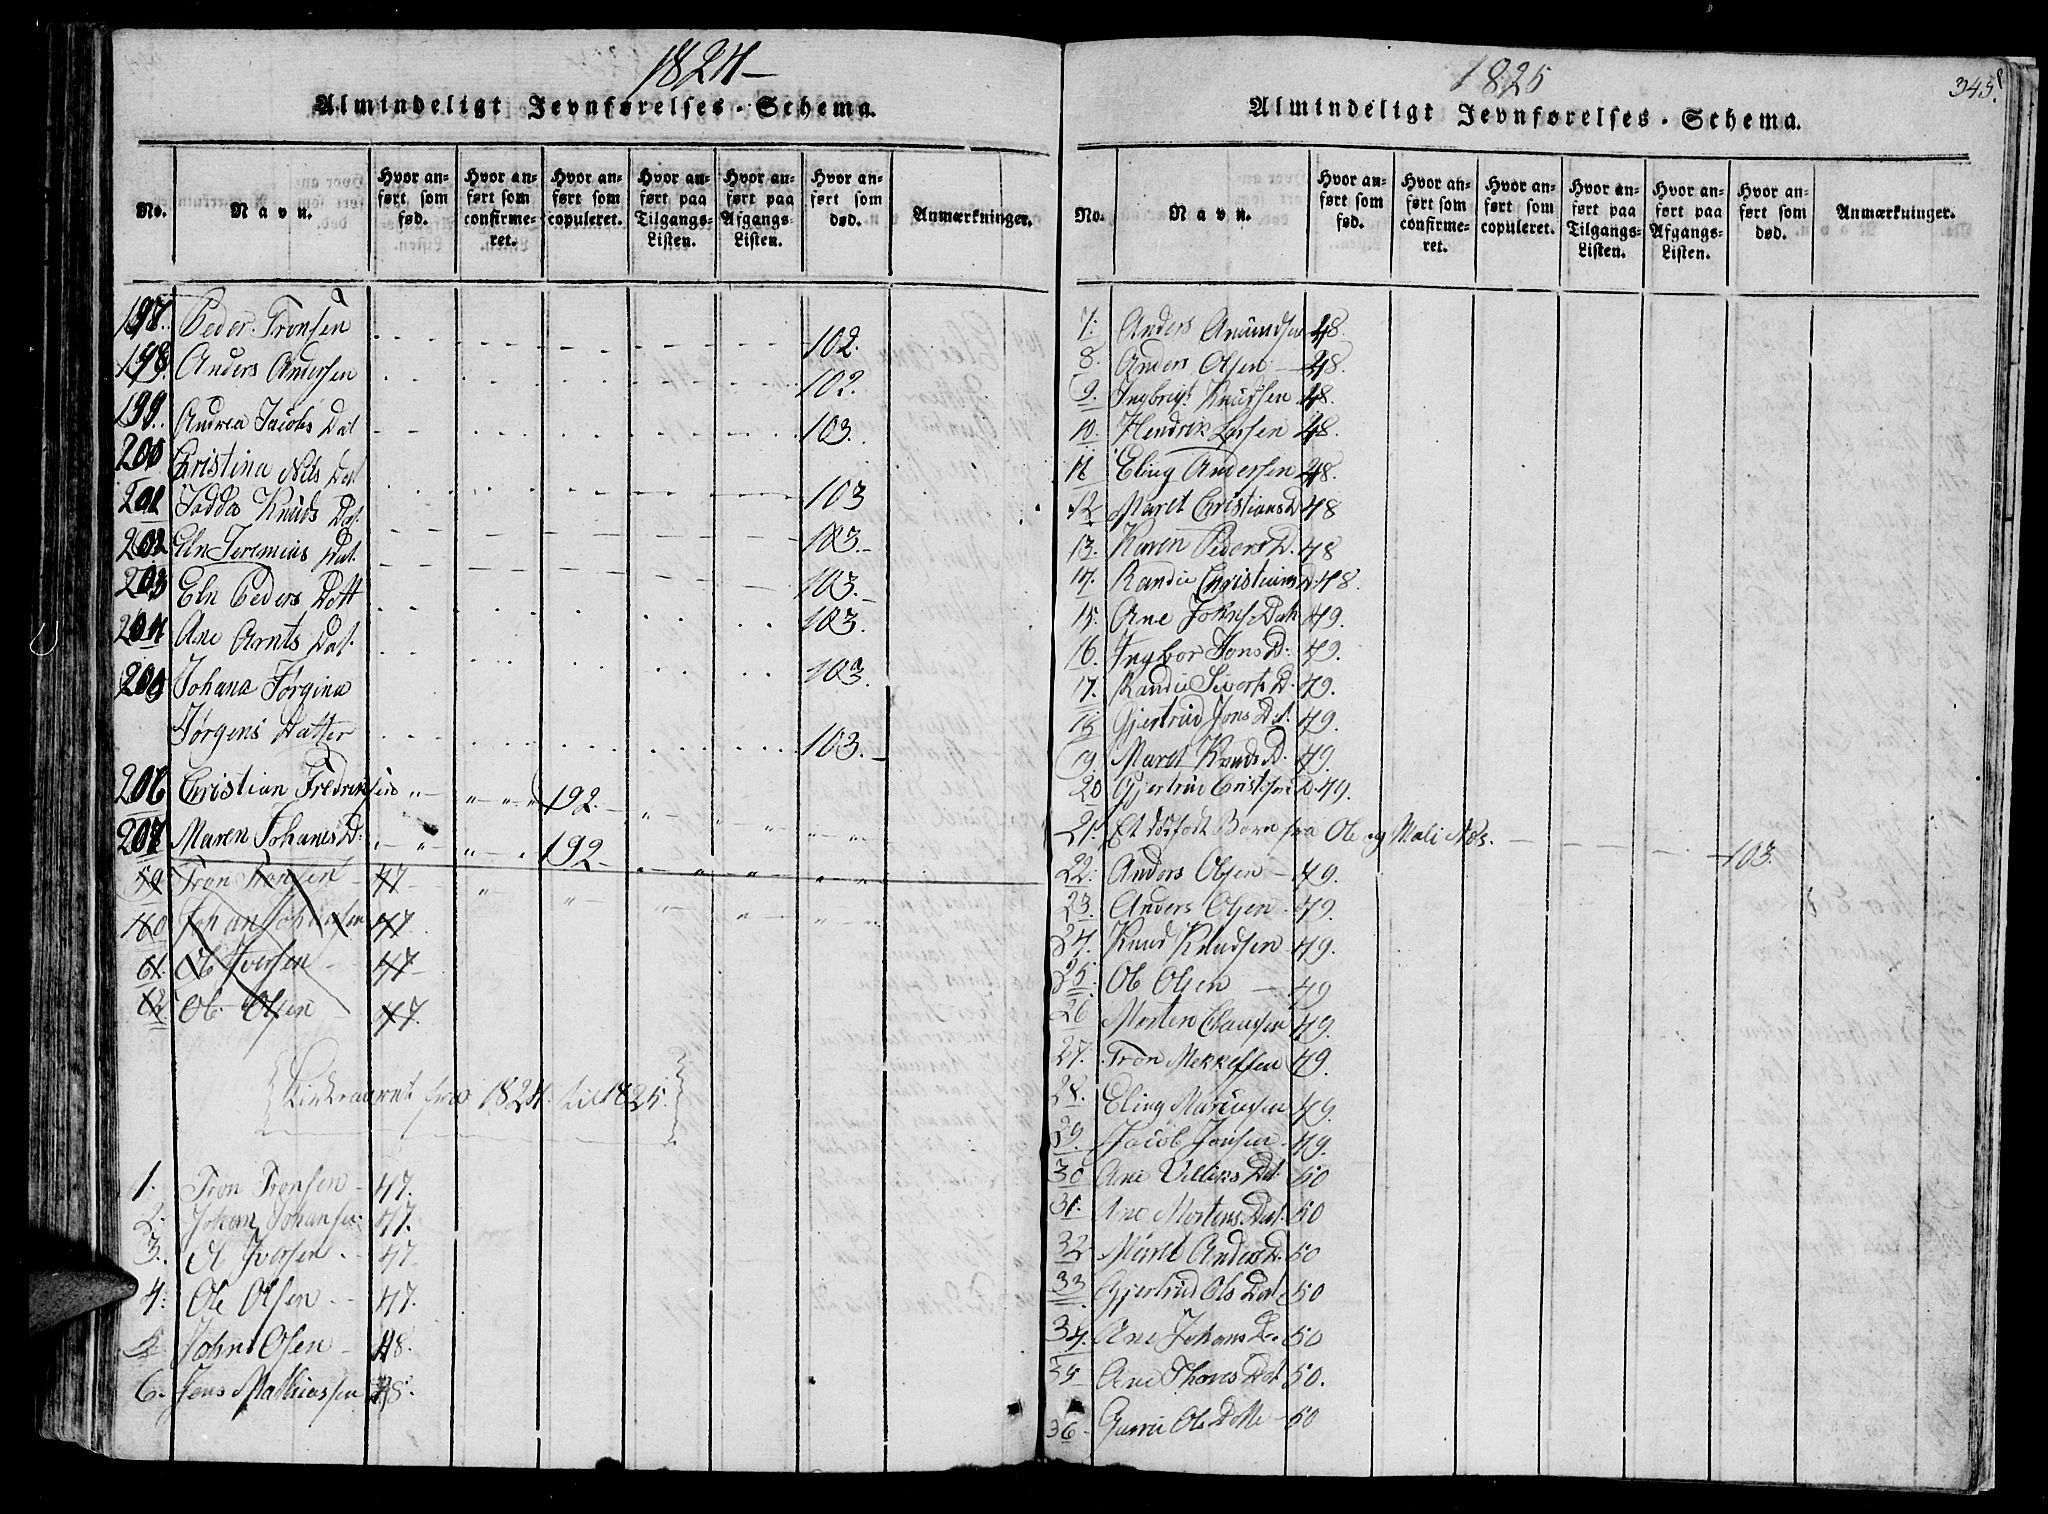 1824
Almindeligt Jevnførelses-Schema.
No.
Navn.
Hvor anført som fød.
Hvor anført som confirmeret.
Hvor anført som copuleret.
Hvor anført paa Tilgangs-Listen.
Hvor anført paa Afgangs-Listen.
Hvor anført som død.
Anmærkninger.
197. Peder Tronsen 102.
198. Anders Andersen 102.
199. Andrea Jacobs Dat 103.
200 Christina Nils Dat 103
201 Knuds Dat. 103.
202 Eln Jeremias Dat. 103.
203 Eln Peders Dott 103.
204 Ane Arnts Dat. 103.
Johana Jørgina
Jørgens Datter 103.
206 Christian Fredriksen 192.
207 Maren Johanes D: 192
59 Tron Tronsen 47
60 Johan Johansen 47
61. Ole Iversen 47
62 Ole Olsen 47.
Kirkeaaret fra 1824. til 1825.
1. Tron Tronsen 47.
2. Johan Johansen 47.
3. Ol Iversen 47
4. Ole Olsen 47.
5 John Olsen 48.
6. Jens Mathiassen 48.
1825
345.
Almindeligt Jevnførelses-Schema.
No.
Navn.
Hvor anført som fød.
Hvor anført som confirmeret.
Hvor anført som copuleret.
Hvor anført paa Tilgangs-Listen.
Hvor anført paa Afgangs-Listen.
Hvor anført som død.
Anmærkninger.
7. Anders Amundsen 48.
8. Anders Olsen 48.
9. Ingbrigt Knudsen 48.
10. Hendrik Larsen 48.
11 Eling Andersen 48.
12 Maret Christians D 48
13. Karen Peders D. 48
14. Randie Christians D. 48.
15. Ane Johns Dat 49.
16. Ingbor Jons D: 49.
17. Randie Siverts D. 49.
18 Gjertrud Jons Dat. 49.
19. Maret Knuds D. 49.
20 Gjertrud D. 49.
21. Et dødfødt Barn fra Ole og Mali Næs. 103.
22. Anders Olsen 49.
23. Anders Olsen 49.
24. Knud Knudsen 49.
25. Ole Olsen 49
26 Morten Clausen 49.
27. Tron Mekkelsen 49.
28. Eling Mariussen 49
29. Jacob Jonsen 49.
30 Ane Dat. 50
31. Ane Mortens Dat. 50
32 Maret Anders D. 50
33 Gjertrud Ols Dat 50
34. Ane Johans D. 50
35 Ane Dat 50.
36 Gurrie Ols Dotte 50